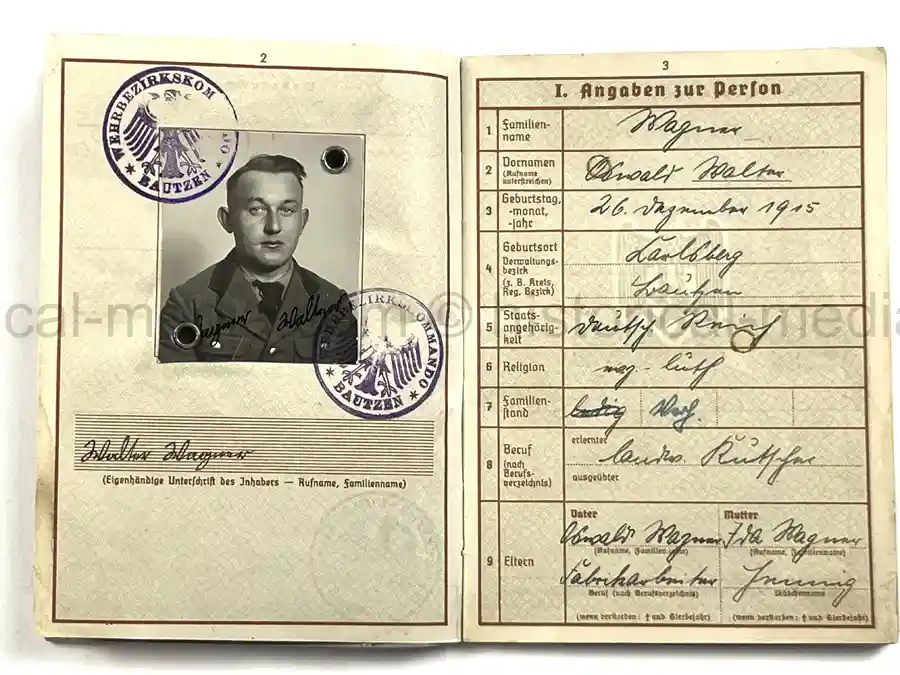 2
WEHRBEZIRKSKOMMANDO
* BAUTZEN *
Wagner Walter
WEHRBEZIRKSKOMMANDO
* BAUTZEN *
Walter Wagner
(Eigenhändige Unterschrift des Inhabers — Rufname, Familienname)
3
I. Angaben zur Person
1 Familien-
name
Wagner
2 Vornamen
(Rufname
unterstreichen)
Oswald Walter
3 Geburtstag,
-monat,
-jahr
26. Dezember 1915
4 Geburtsort
Verwaltungs-
bezirk
(z. B. Kreis,
Reg. Bezirk)
Carlsberg
Bautzen
5 Staats-
angehörig-
keit
Deutsch. Reich
6 Religion
evg.-luth
7 Familien-
stand
ledig Verh.
8 Beruf
(nach
Berufs-
verzeichnis)
erlernter
landw. Kutscher
ausgeübter
9 Eltern
Vater Mutter
Oswald Wagner Ida Wagner
(Rufname, Familienname) (Rufname, Familienname)
Fabrikarbeiter Hennig
Beruf (nach Berufsverzeichnis) Mädchenname
(wenn verstorben: † und Sterbejahr) (wenn verstorben: † und Sterbejahr)